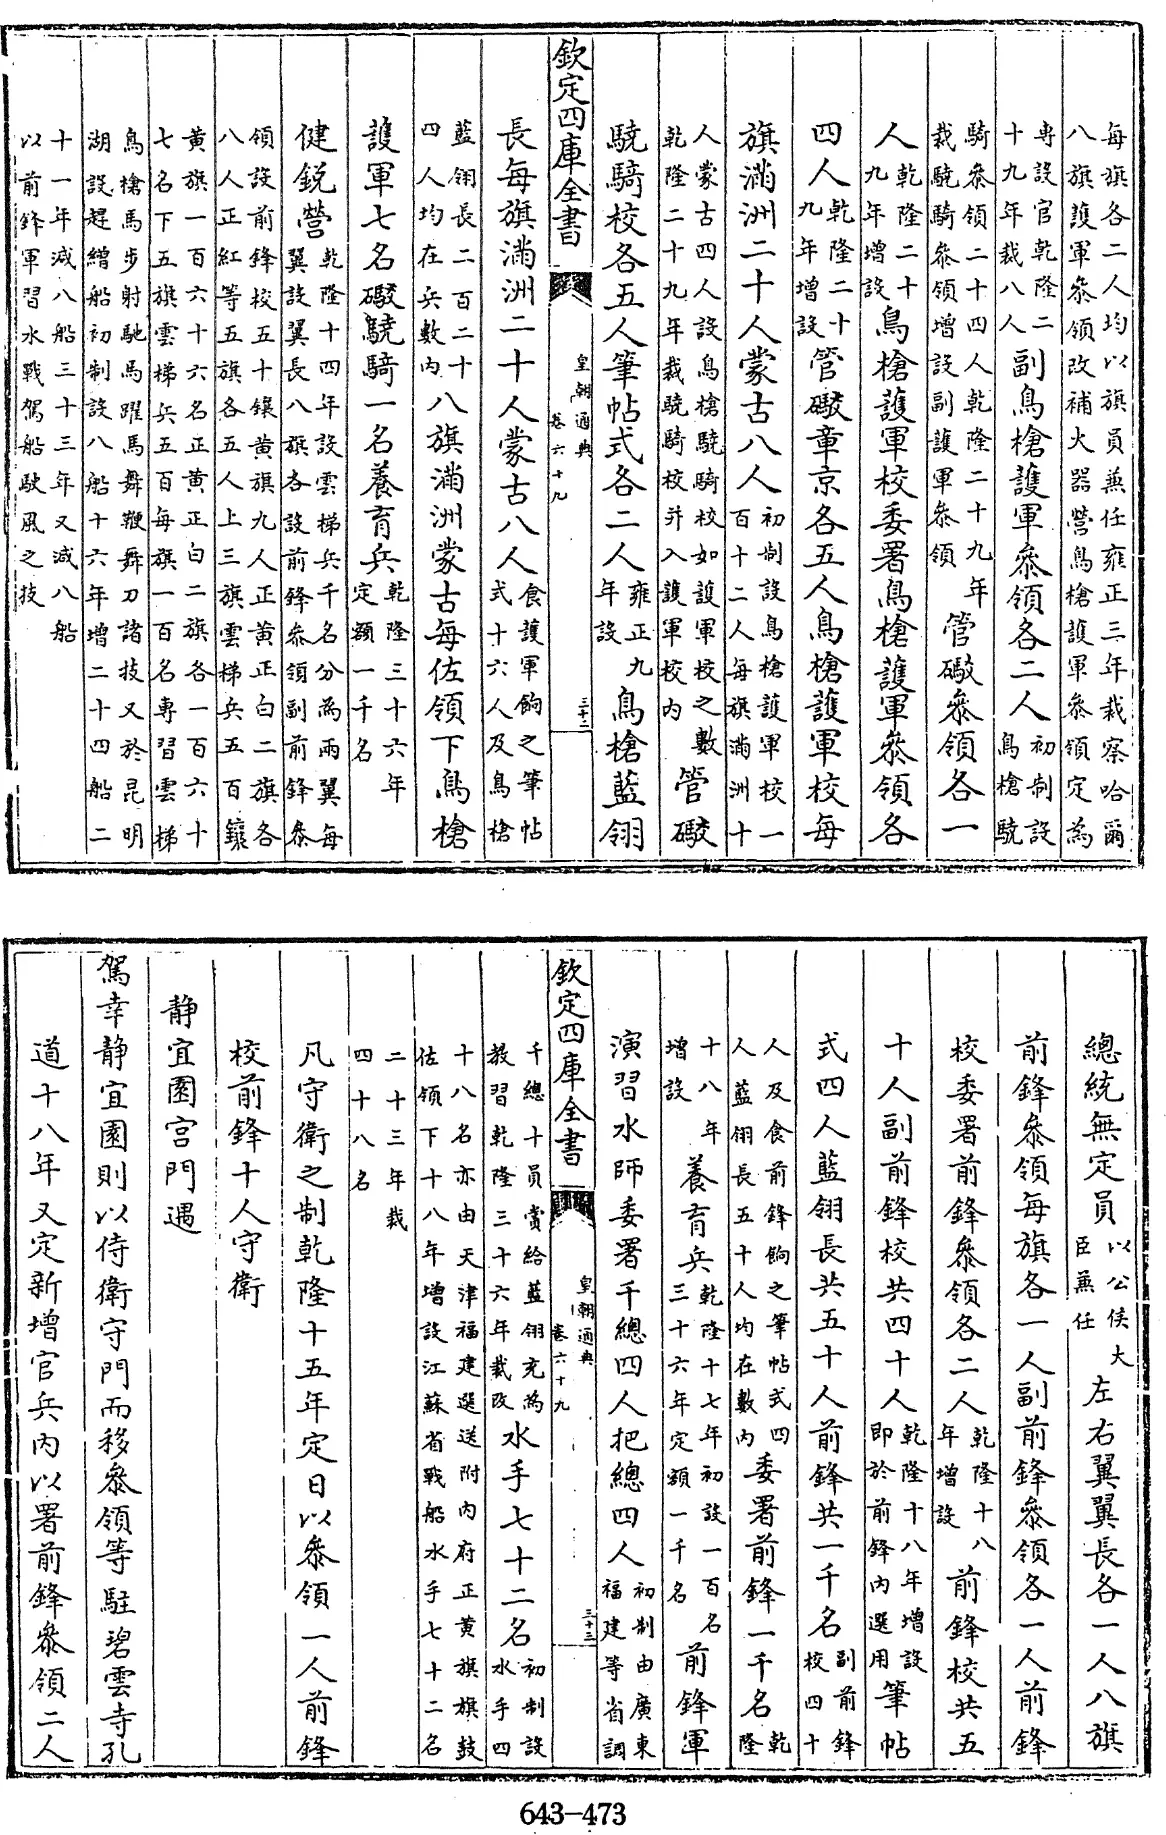 每旗各二人均以旗員兼任雍正三年裁察哈爾
八旗護軍叅領改補火器營鳥槍護軍叅領定為
専設官乾隆二十九年裁八人副鳥槍護軍叅領各二人初制設鳥槍驍
騎叅領二十四人乾隆二十九年裁驍騎叅領增設副護軍叅領管礮叅領各一
人乾隆二十九年增設鳥槍護軍校委署鳥槍護軍叅領各
四人乾隆二十九年增設管礮章京各五人鳥槍護軍校每
旗滿洲二十人蒙古八人初制設鳥槍護軍校一百十二人每旗滿洲十
人蒙古四人設鳥槍驍騎校如護軍校之數乾隆二十九年裁驍騎校并入護軍校內管礮
驍騎校各五人筆帖式各二人雍正九年設鳥槍藍翎
欽定四庫全書
皇朝通典
卷六十九
三十二
長每旗滿洲二十人蒙古八人食護軍餉之筆帖式十六人及鳥槍
藍翎長二百二十四人均在兵數內八旗滿洲蒙古每佐領下鳥槍
護軍七名礮驍騎一名養育兵乾隆三十六年定額一千名
健銳營乾隆十四年設雲梯兵千名分為兩翼每翼設翼長八旗各設前鋒叅領副前鋒叅
領設前鋒校五十鑲黃旗九人正黃正白二旗各
八人正紅等五旗各五人上三旗雲梯兵五百鑲
黃旗一百六十六名正黃正白二旗各一百六十
七名下五旗雲梯兵五百每旗一百名専習雲梯
鳥槍馬步射馳馬躍馬舞鞭舞刀諸技又於昆明
湖設趕繒船初制設八船十六年增二十四船二
十一年減八船三十三年又減八船
以前鋒軍習水戰駕船駛風之技
總統無定員以公侯大臣兼任左右翼翼長各一人八旗
前鋒叅領每旗各一人副前鋒叅領各一人前鋒
校委署前鋒叅領各二人乾隆十八年增設前鋒校共五
十人副前鋒校共四十人乾隆十八年增設即於前鋒內選用筆帖
式四人藍翎長共五十人前鋒共一千名副前鋒校四十
人及食前鋒餉之筆帖式四人藍翎長五十人均在數內委署前鋒一千名乾隆
十八年增設養育兵乾隆十七年初設一百名三十六年定額一千名前鋒軍
演習水師委署千總四人把總四人初制由廣東福建等省調
欽定四庫全書
皇朝通典
卷六十九
三十三
千總十員賞給藍翎充為教習乾隆三十六年裁改水手七十二名初制設水手四
十八名亦由天津福建選送附內府正黃旗旗鼓
佐領下十八年增設江蘇省戰船水手七十二名
二十三年裁四十八名
凡守衛之制乾隆十五年定日以叅領一人前鋒
校前鋒十人守衛
靜宜園宮門遇
駕幸靜宜園則以侍衛守門而移叅領等駐碧雲寺孔
道十八年又定新增官兵內以署前鋒叅領二人
643-473